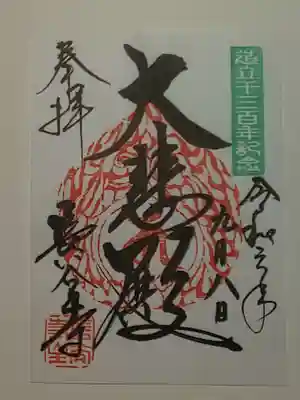 造立千三百年記念
令和三年
九月八日
大悲殿
奉拝
長谷寺